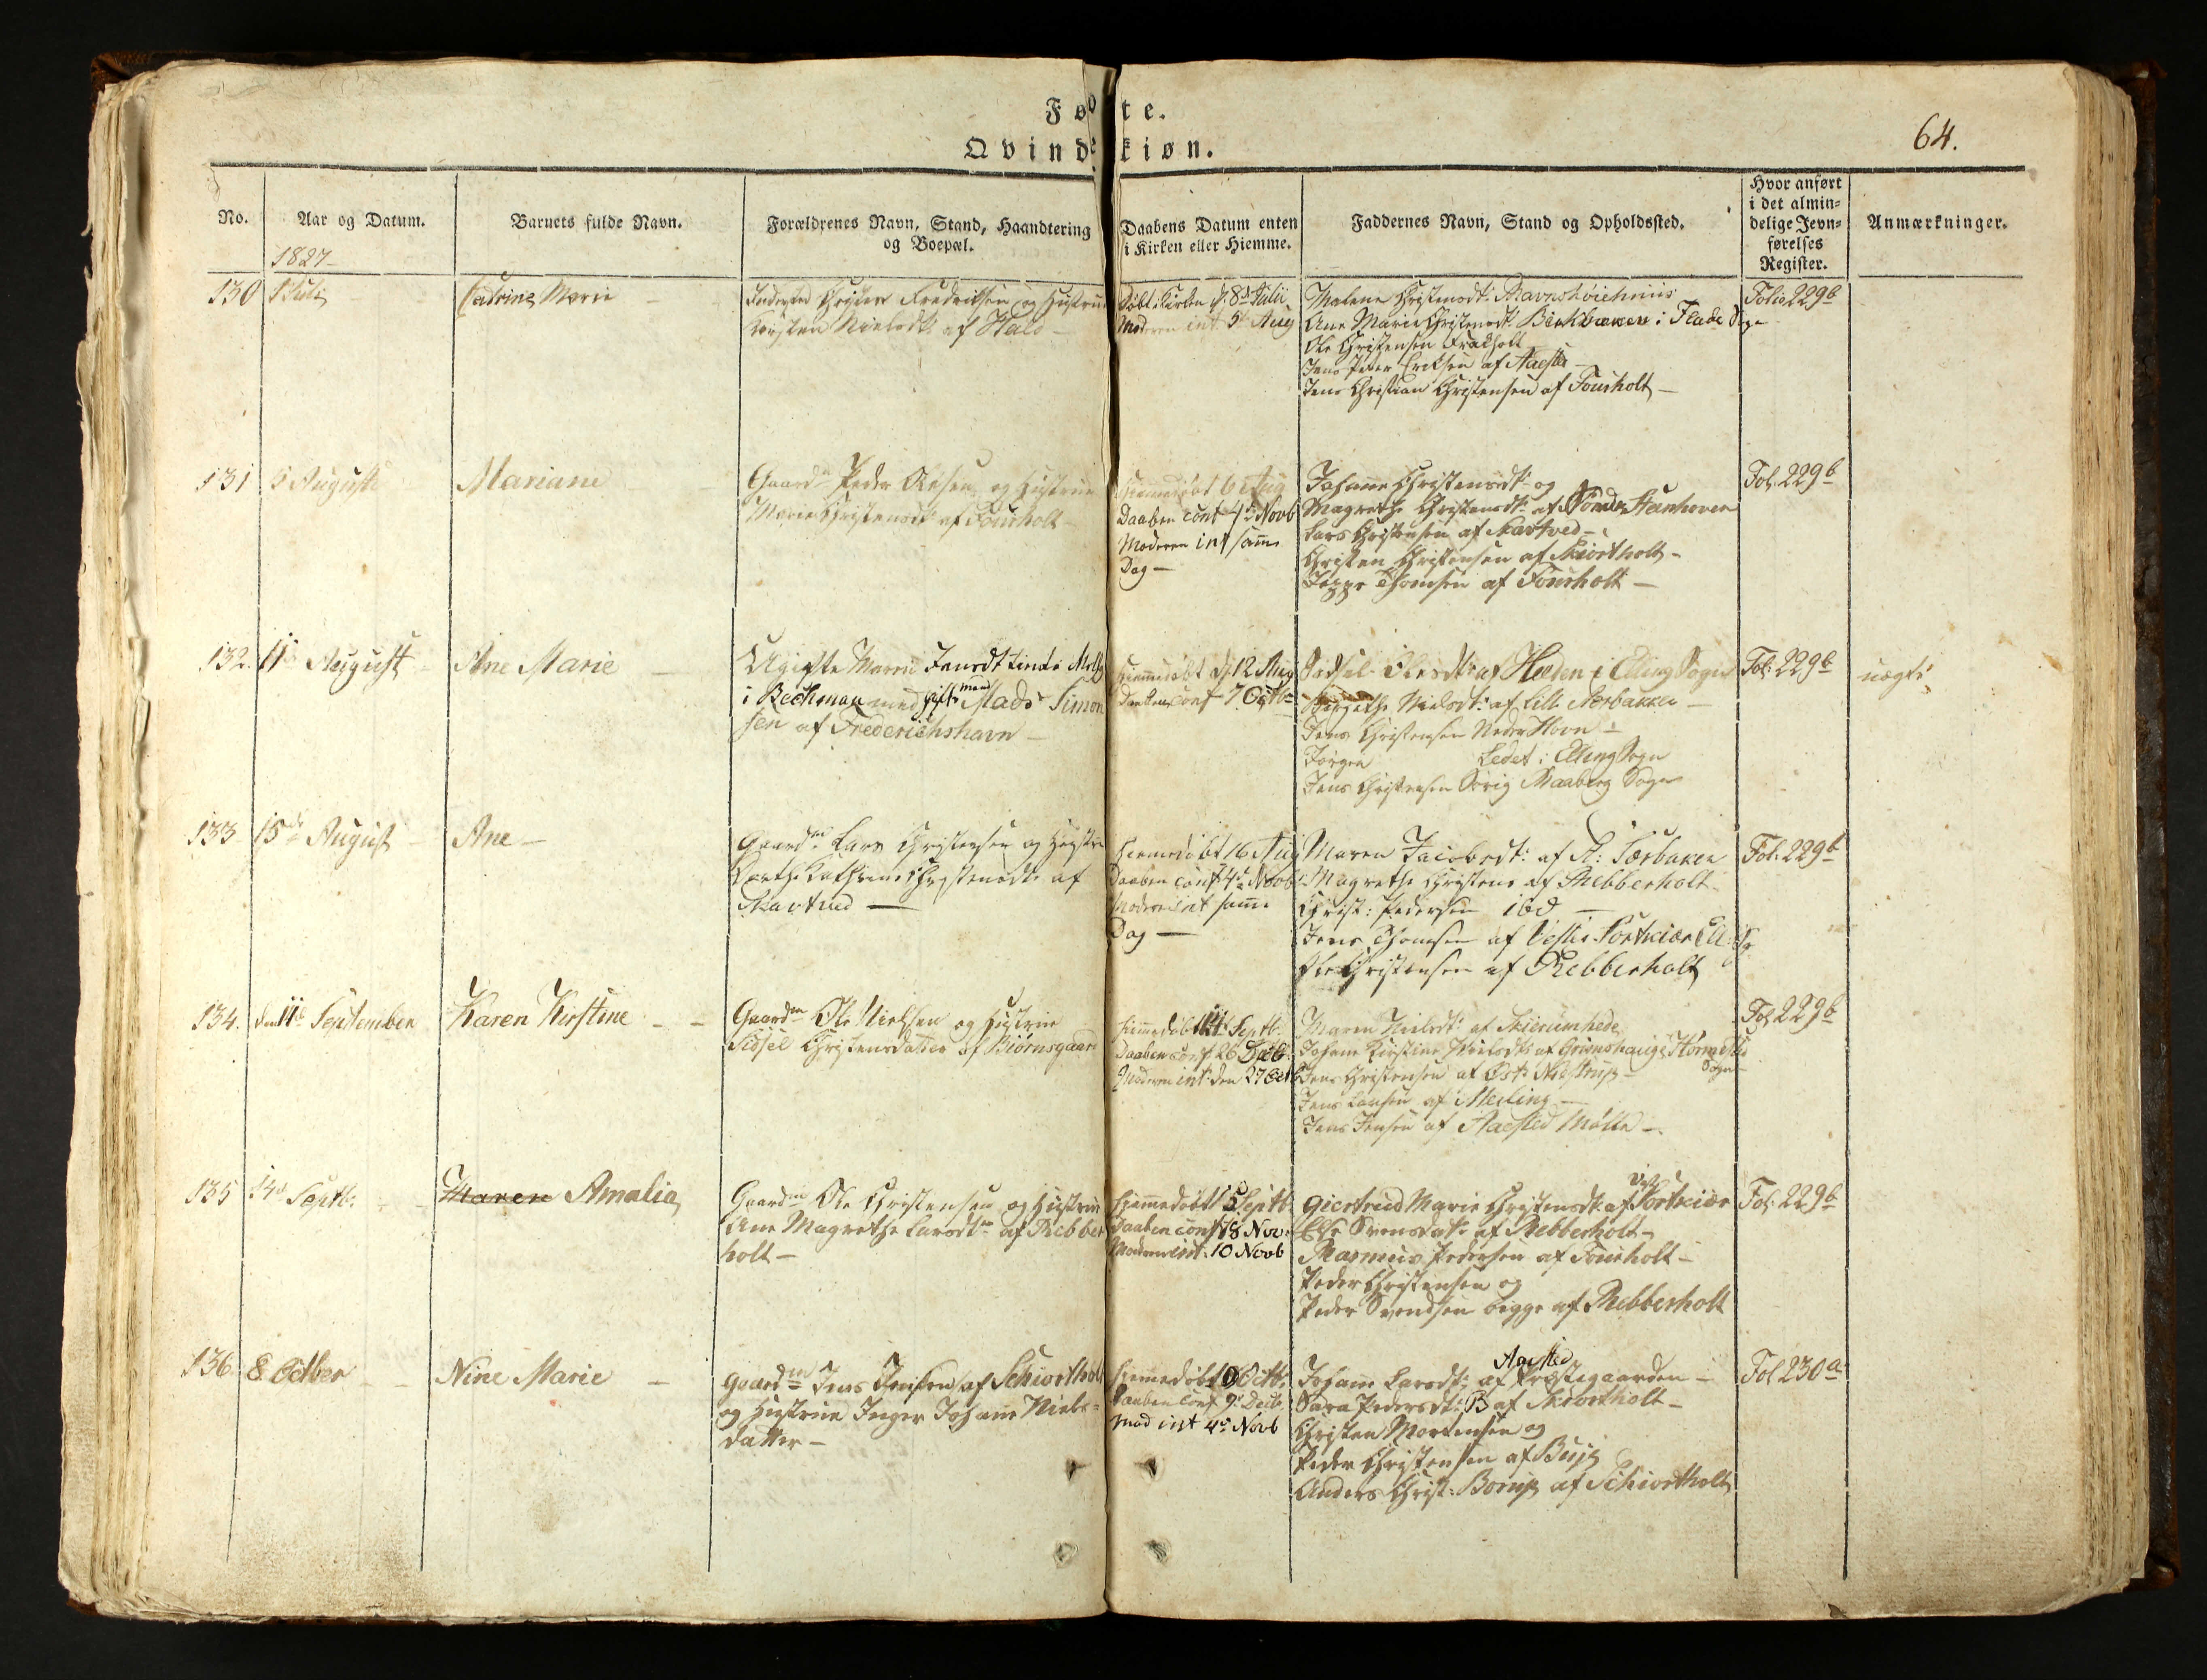 Fødte.
Qvindekiøn.
64.
No.
Aar og Datum.
Barnets fulde Navn.
Forældrenes Navn, Stand, Haandtering
og Boepæl.
Daabens Datum enten
i Kirken eller Hiemme.
Faddernes Navn, Stand og Opholdssted.
Hvor anført
i det almin=
delige Jevn=
førelses
Register.
Anmærkninger.
1827
130
1 Juli
Catrine Marie
Indersted Christen Fredriksen og Hustrue
Kirsten Nielsdt: af Hald
Døbt i Kirken d: 8d Julii
Moderen int 5t Aug
Malene Christensdt:
Ane Marie Christensdt: Birkbacken i Flade Sogn
Ole Christensen
Jens Peter Eriksen af Aasted
Jens Christian Christensen af Fourholt
Folio 229b
131
5 August
Mariane
Gaardm Peder Olesen og Hustrue
Maren Christensdt: af Fourholt
Hiemmedøbt 6 Aug
Daaben conf 4d Novb
Moderen int samme
Dag
Johanne Christensdt: og
Magrethe Christensdt: af Stenhoven
Lars Christensen af Skartved
Christen Christensen af Skiortholt
Jeppe Thomsen af Fourholt
Fol: 229b
132.
11te August
Ane Marie
Ugifte Maren Jensdt
i Beckman med gifte mand Mads Simon
sen af Frederichshavn
Hiemmedøbt d: 12 Aug
Daaben conf 7 Octb
Sidsel Olesdt: af Heden i Elling Sogn
Nielsdt: af Lille Nerbakken
Jens Christensen Neder Hovn
Jørgen Ledet i Elling Sogn
Jens Christensen Sørig Raaberg Sogn
Fol: 229b
uægte
133
15de August
Ane
Gaardm Lars Christensen og Hustrue
Dorthe Cathrine Christensdt: af
Skartved
Hiemmedøbt 16 Aug
Daaben conf 4d Novb
Moderen int samme
Dag
Maren Jacobsdt: af
Magrethe Christens af Rebberholt
Christ: Pedersen ibd
Jens Thomsen af Vester
Ole Christensen af Rebberholt
Fol: 229b
134.
den 11te September
Karen Kirstine
Gaardm Ole Nielsen og Hustrue
Sidsel Christensdatter af Biørnsgaard
Hiemmedøbt Septb.
Daaben conf 26 Decb.
Moderen int: den 27 Octb
Maren Nielsdt: af Skierumhede
Johane Kirstine Nielsdt: af Grønshauge
Sogn
Jens Christensen af Øst: Nustrup
Jens Larsen af Meiling
Jens Jensen af Aasted Mølle
Fol: 229b
135
14d Septb:
Maren Amalia
Gaardm Ole Christensen og Hustrue
Ane Magrethe Larsdt: af Rebber
holt
Hiemmedøbt 15 Septb
Daaben conf 18 Nov:
Moderen int: 10 Novb
Giertrud Marie Christensdt: af
Else Svensdat: af Rebberholt
Rasmus Pedersen af Fourholt
Peder Christensen og
Peder Svendsen begge af Rebberholt
Fol: 229b
136.
8 October
Nine Marie
Gaardm Jens Jensen af Schiortholt
og Hustrue Inger Johane Niels=
datter
Hiemmedøbt Octb:
Daaben conf 9d Decb
Mod int 4d Novb
Johane Larsdt: af Aasted Præstegaarden
Sara Pedersdt: af Skiortholt
Christen Mortensen og
Peder Christensen af
Anders Christ: Borup af Schiortholt
Fol 230a